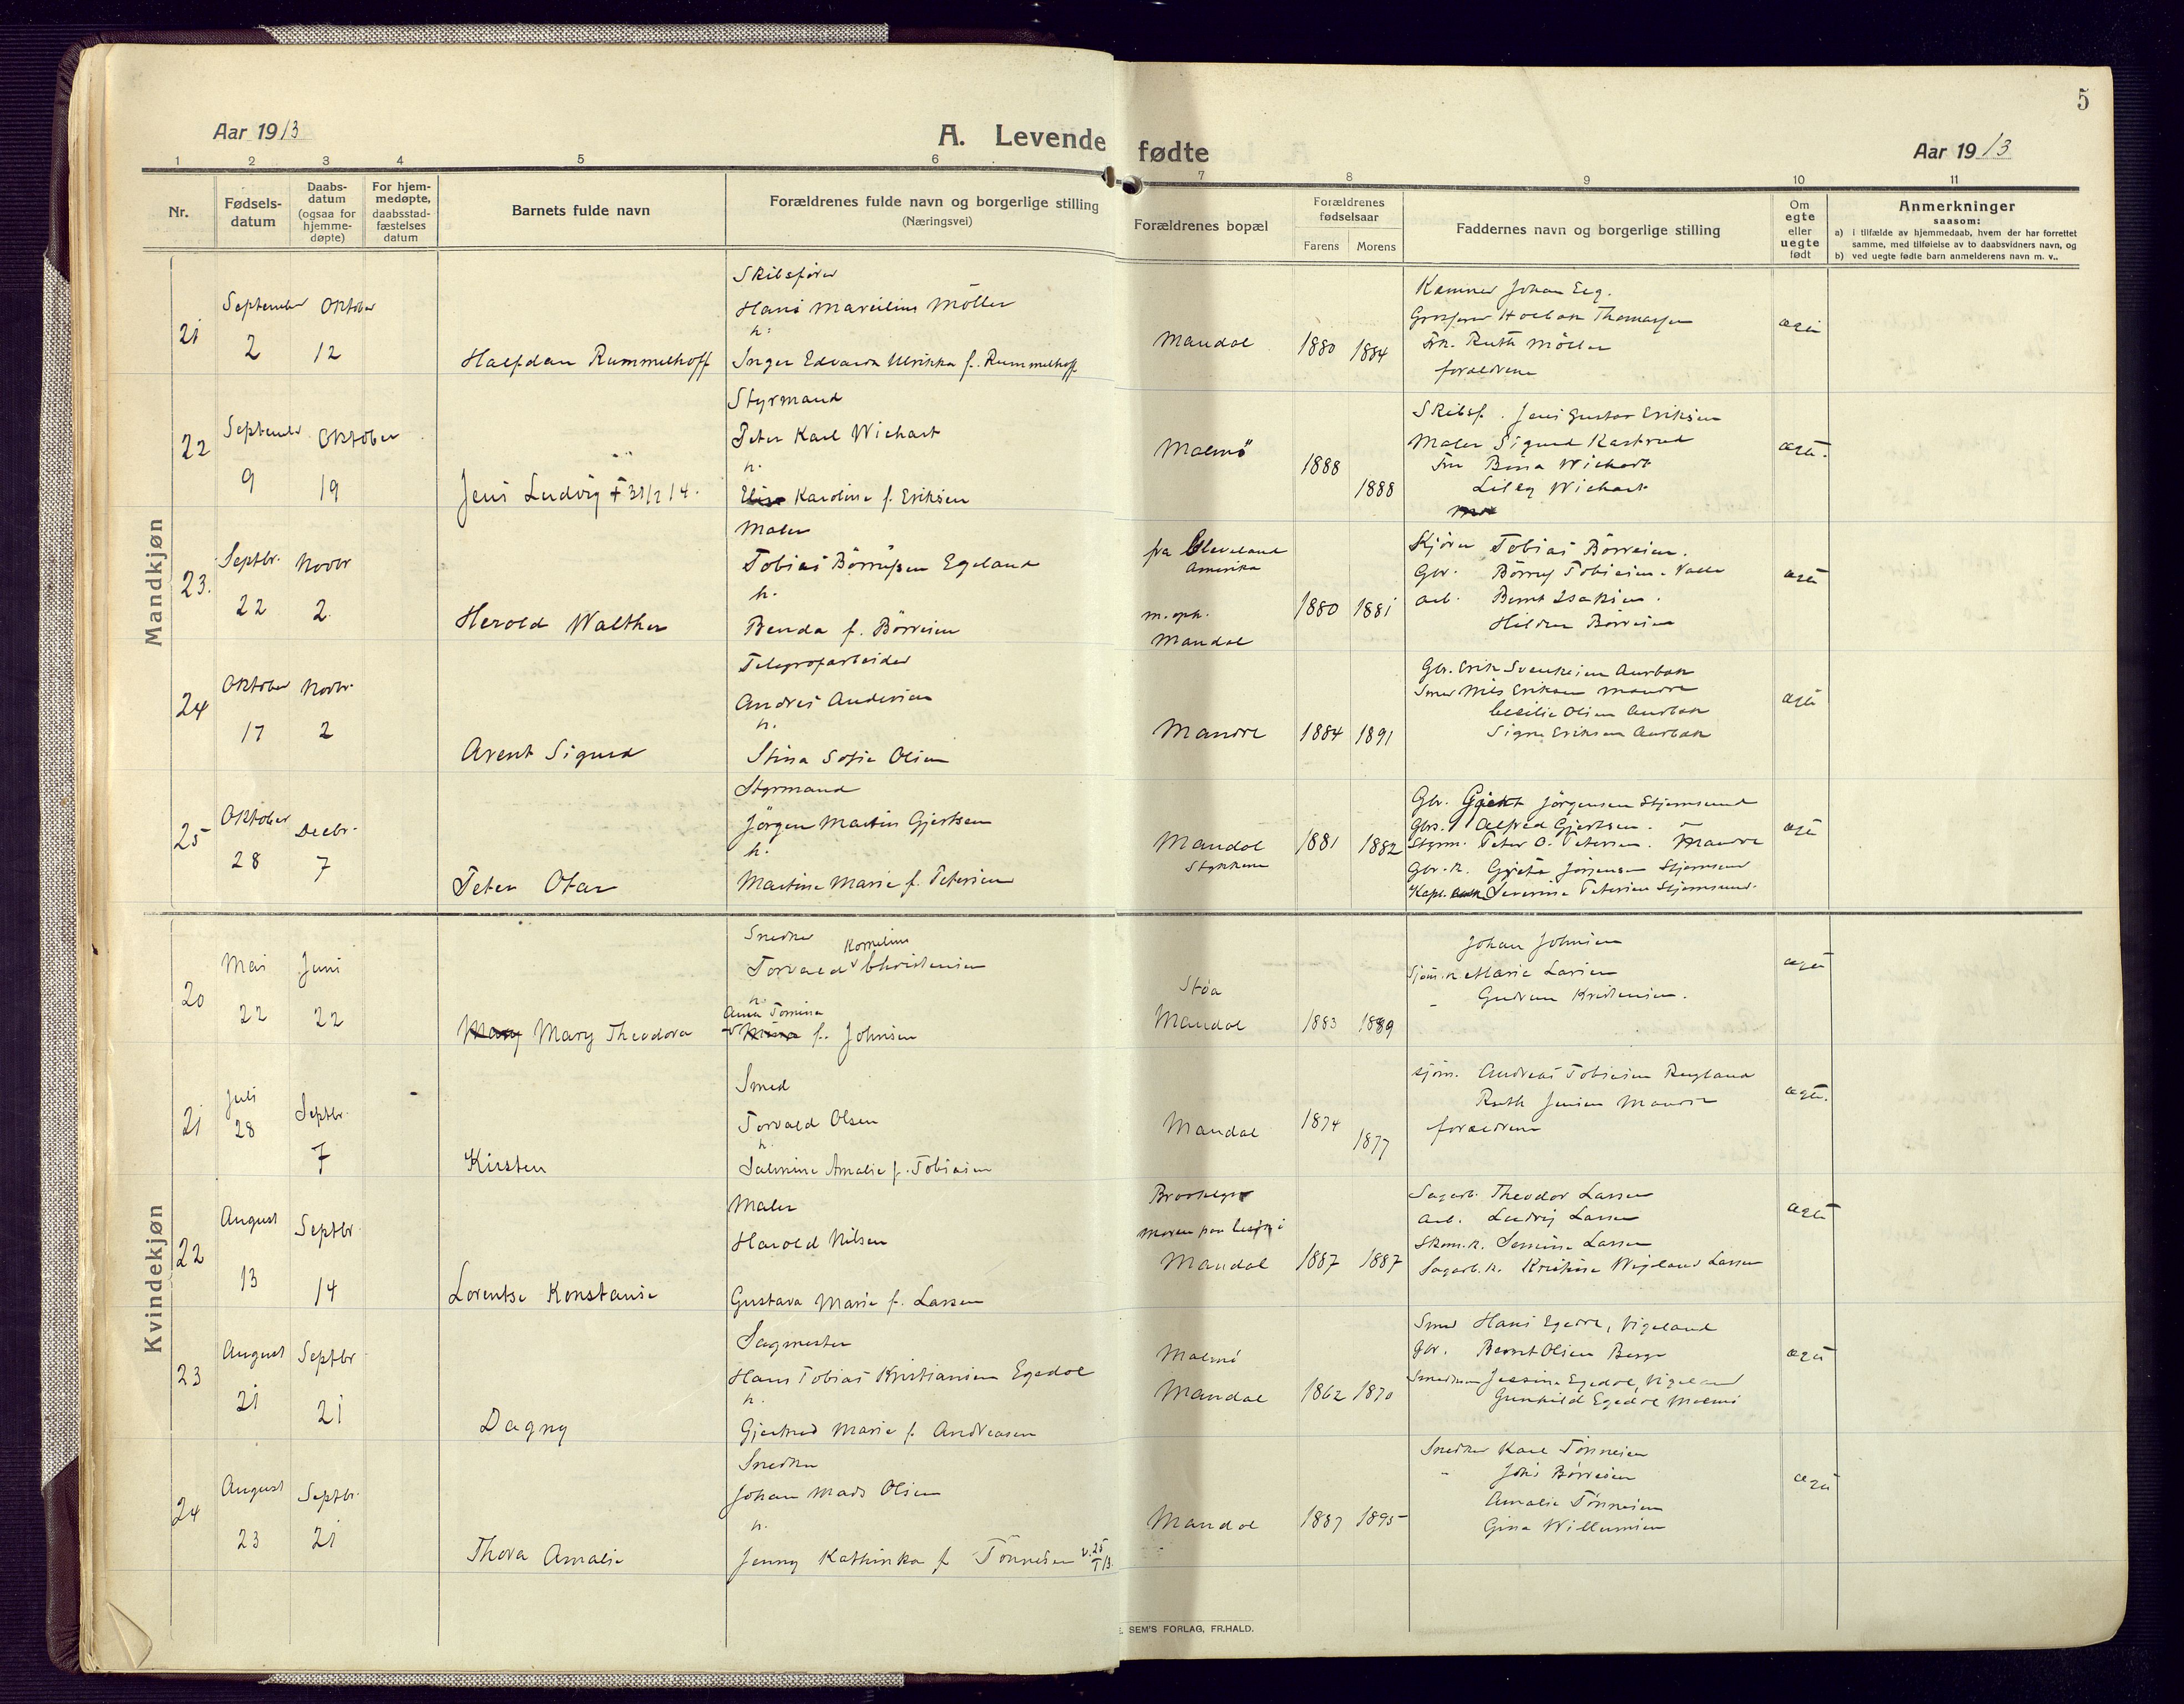 5
Aar 1913
A. Levende fødte
Aar 1913
1 2 3 4 5 6 7 8 9 10 11
Nr.
Fødsels-
datum
Daabs-
datum
(ogsaa for
hjemme-
døpte)
For hjem-
medøpte,
daabsstad-
fæstelses
datum
Barnets fulde navn
Forældrenes fulde navn og borgerlige stilling
(Næringsvei)
Forældrenes bopæl
Forældrenes
fødselsaar
Farens Morens
Faddernes navn og borgerlige stilling
Om
egte
eller
uegte
født
Anmerkninger
saasom:
a) i tilfælde av hjemmedaab, hvem der har forrettet
samme, med tilføielse av to daabsvidners navn, og
b) ved uegte fødte barn anmelderens navn m. v..
Mandkjøn
21
September Oktober
2 12
Halfdan Rummelhoff
Skibsfører
Hans Marcilius Möller
h.
Inger Edvarda Ulrikka f. Rummelhoff
Mandal
1880 1884
Kæmner Johan Eeg.
Holbæk Thomassen
Frk. Ruth Möller
forældrene
ægte
22
September Oktober
9 19
Jens Ludvig † 31/2 14.
Styrmand
Peter Karl Wichart
h.
Karoline f. Eriksen
Malmö
1888
1888
Skibsf. Jens Gustav Eriksen
Maler Sigurd Kastrud
Fru Bina Wichart
Lilly Wichart
ægte.
23.
Septbr. Novbr
22 2.
Herold Walther
Maler
Tobias Börresen Egeland
h.
Benda f. Börresen
fra Cleveland
Amerika
m. oph.
Mandal
1880 1881
Tobias Börresen.
Gbr. Börre Tobiesen. Valle
arb. Bernt Isaksen.
Hilda Börresen
ægte
24
Oktober Novbr.
17 2
Arent Sigurd
Telegrafarbeider
Andres Andersen
h.
Stina Sofie Olsen
Mandal
1884 1891
Gbr. Erik Svenksen Aurbak
Smed Nils Eriksen
Cecilie Olsen Aurbak
Signe Eriksen Aurbak
ægte
25
Oktober Decbr.
28 7
Peter Otar
Styrmand
Jörgen Martin Gjertsen
h.
Martine Marie f. Petersen
Mandal
1881 1882
Gbr. Gjert Jörgensen Stjernsund
Gbs. Alfred Gjertsen.
Styrm. Peter O. Petersen.
Gbr.k. Jörgensen Stjernsund
Kapt. Severine Petersen Stjernsund.
ægte
Kvindekjøn
20
Mai Juni
22 22
Mary Mary Theodora
Snedker
Kornelius
Torvald Christensen
h.
Anna Tomine
f. Johnsen
Støa
Mandal
1883 1889
Johan Johnsen
Sjöm.k. Marie Larsen
Gudrun Kristensen.
ægte
21
Juli Septbr.
28 7
Kirsten
Smed
Torvald Olsen
h.
Salmine Amalie f. Tobiasen
Mandal
1874
1877
sjöm. Andreas Tobiesen Røyland
Ruth Jensen
forældrene
ægte.
22
August Septbr
13 14
Lorentse Konstanse
Maler
Harold Nilsen
Gustava Marie f. Larsen
Brooklyn
moren paa besøg i
Mandal
1887 1887
Sagarb. Theodor Larsen
arb. Ludvig Larsen
Skom.k. Larsen
Sagarb.k. Kristine Wigeland Larsen
ægte
23
August Septbr
21 21
Dagny
Sagmester
Hans Tobias Kristiansen Egedal
h.
Gjertrud Marie f. Andreasen
Malmö
Mandal
1862 1870
Smed Hans Egedal, Vigeland
Gbr. Bernt Olsen Berge
Jessine Egedal, Vigeland
Gunhild Egedal Malmö
ægte
24
August Septbr.
23 21
Thora Amalie
Snedker
Johan Mads Olsen
h.
Jenny Kathinka f Tönnesen v. 25/7 13.
Mandal
1887 1895
Snedker Karl Tönnesen
" Johs Börresen
Amalie Tönnesen
Gina Willumsen
ægte
SEM'S FORLAG, FR.HALD.